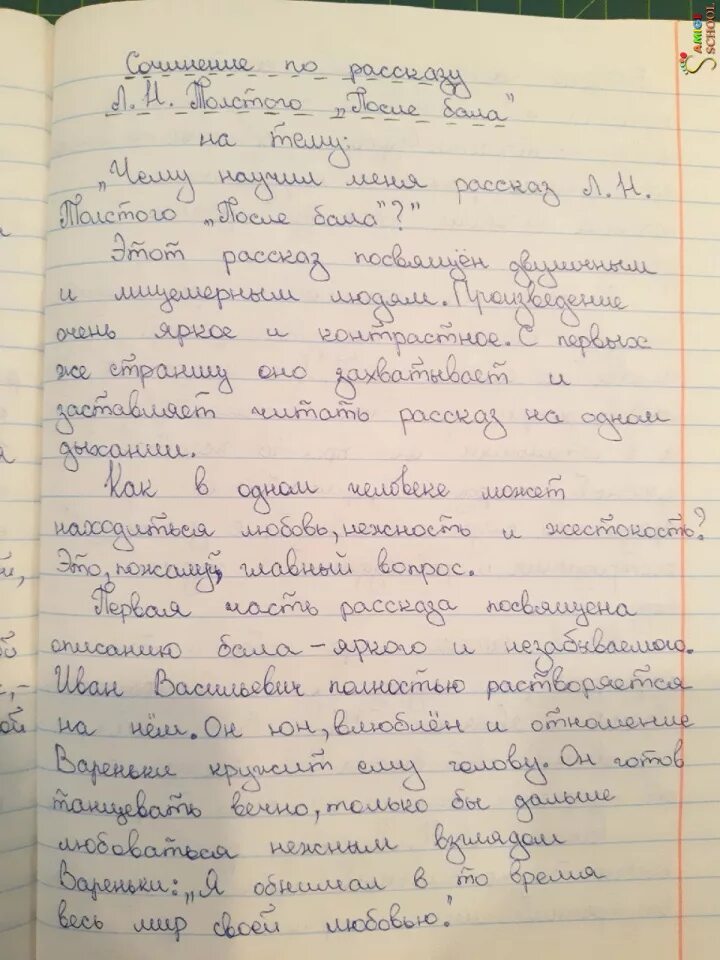 Сочинение по рассказу
Л. Н. Толстого „После бала"
на тему:
„Чему научил меня рассказ Л. Н.
Толстого „После бала"?"
Этот рассказ посвящён двуличным
и лицемерным людям. Произведение
очень яркое и контрастное. С первых
же страниц оно захватывает и
заставляет читать рассказ на одном
дыхании.
Как в одном человеке может
находиться любовь, нежность и жестокость?
Это, пожалуй, главный вопрос.
Первая часть рассказа посвящена
описанию бала – яркого и незабываемого.
Иван Васильевич полностью растворяется
на нём. Он юн, влюблён и отношение
Вареньки кружит ему голову. Он готов
танцевать вечно, только бы дальше
любоваться нежным взглядом
Вареньки: „Я обнимал в то время
весь мир своей любовью."
AMIGE
SCHOOL